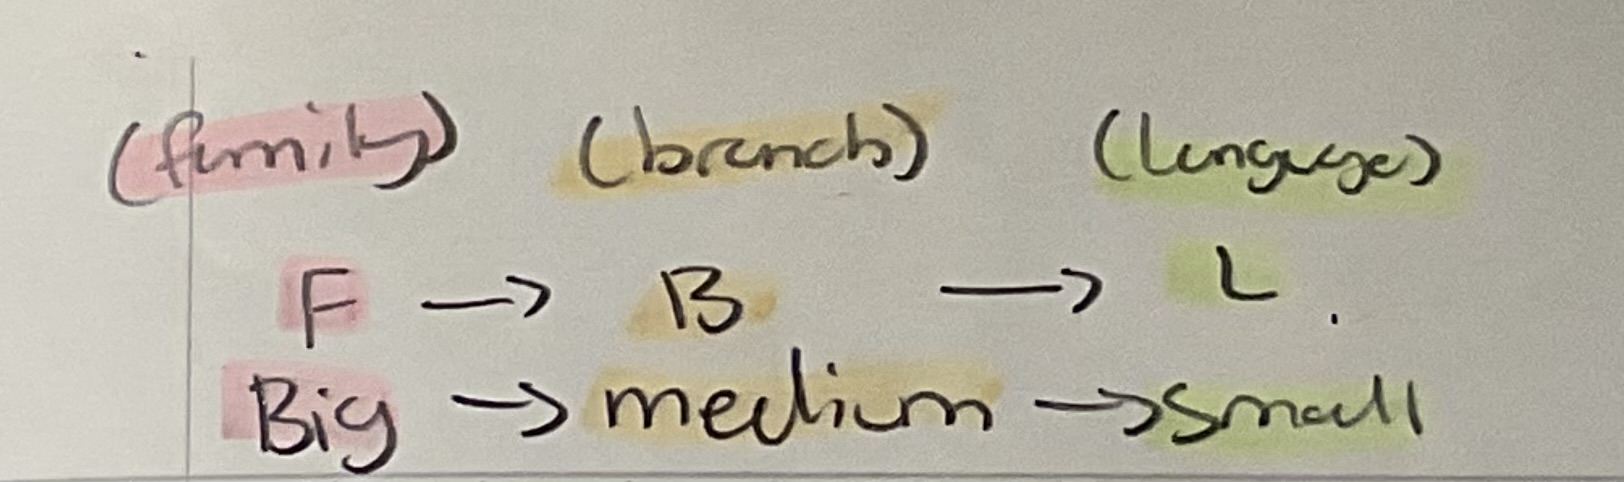 (family) (branch) (language)
F → B → L
Big → medium → small